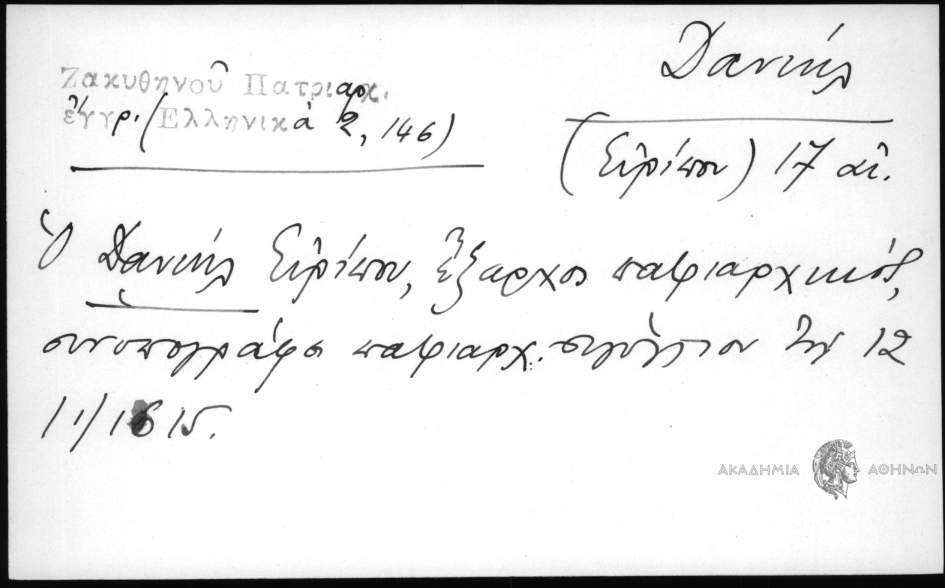 Ζακυθηνοῦ Πατριαρχ.
ἔγγρ. (Ἑλληνικά 2, 146)
Δανιήλ
(Εὐρίπου) 17 αἰ.
Ὁ Δανιήλ Εὐρίπου, ἔξαρχος πατριαρχικός,
συνυπογράφει πατριαρχ. σιγίλλιον τῇ 12
/1/1615.
ΑΚΑΔΗΜΙΑ ΑΘΗΝΩΝ